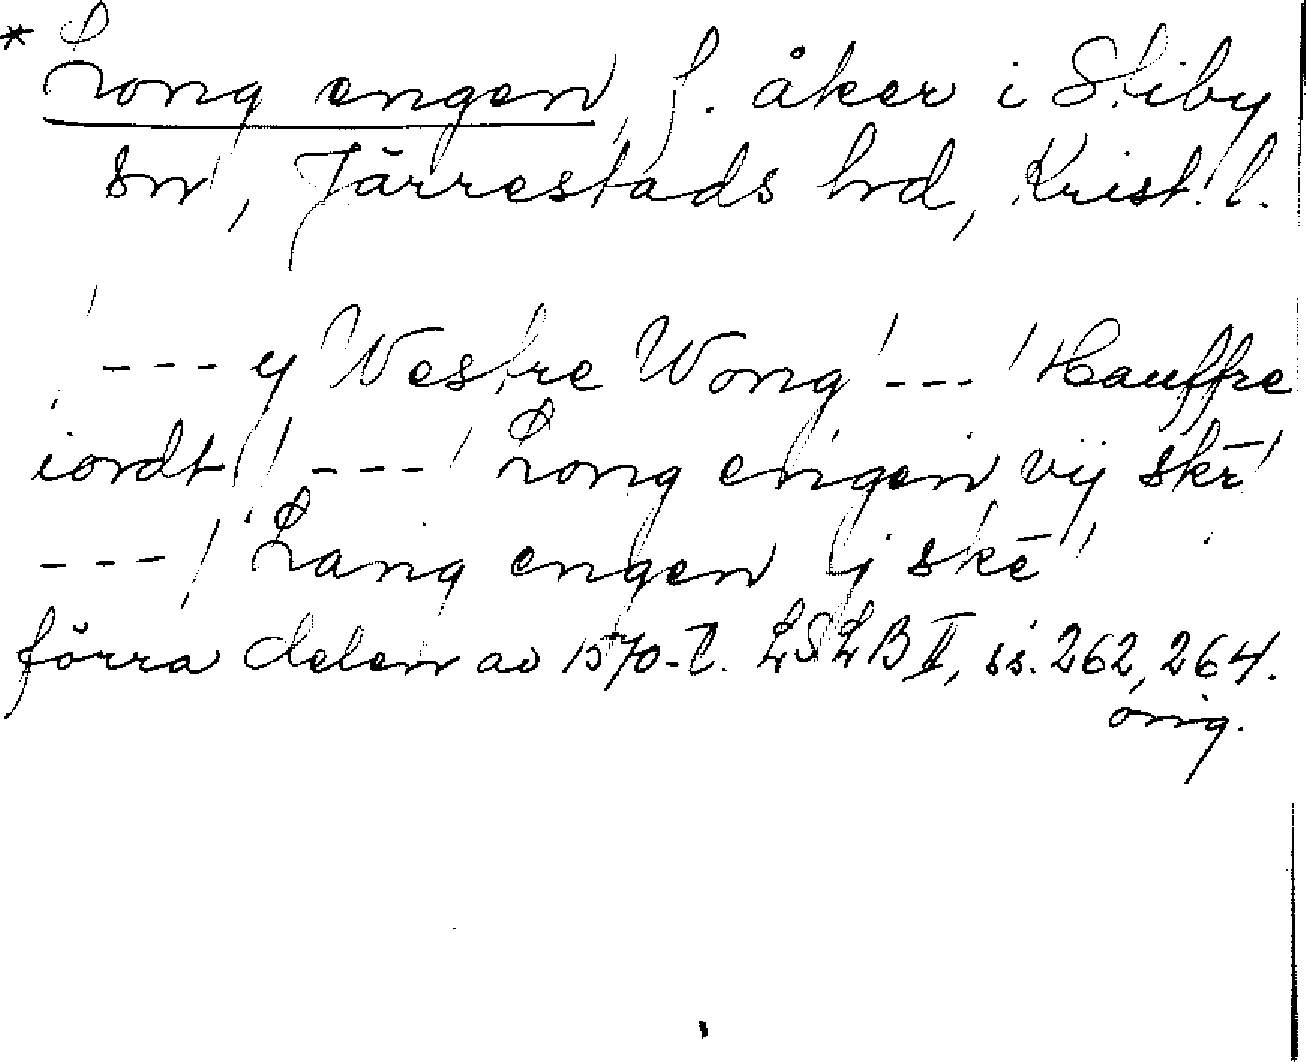 * Long engen, f. åker i Stiby
sn, Järrestads hrd, Krist. l.
--- y Vestre Wong ' --- ' Hauffre
iordt ' --- ' Long engen vij skē '
--- ' Lang engen ij skē '
förra delen av 1570-t. LSLB II, ss. 262, 264.
orig.